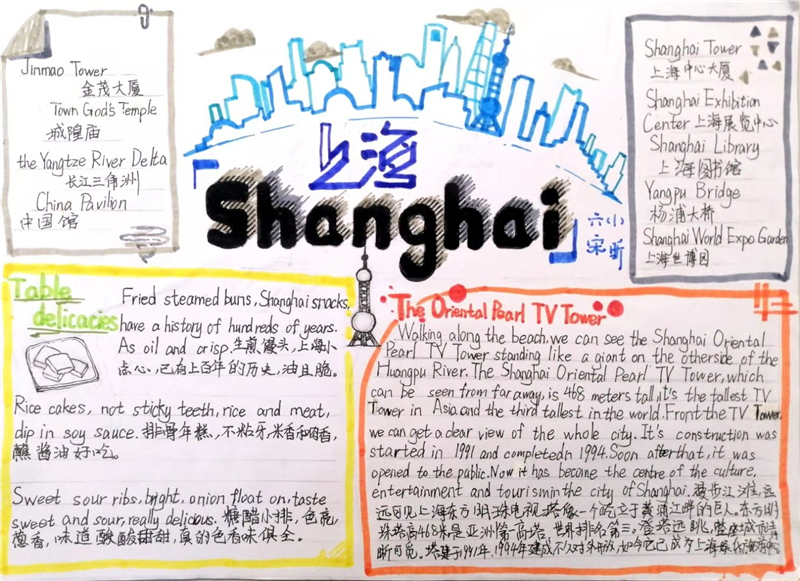 Jinmao Tower
金茂大厦
Town God's Temple
城隍庙
the Yangtze River Delta
长江三角洲
China Pavilion
中国馆
上海
Shanghai
小昕
六宋
Shanghai Tower
上海中心大厦
Shanghai Exhibition
Center 上海展览中心
Shanghai Library
上海图书馆
Yangpu Bridge
杨浦大桥
Shanghai World Expo Garden
上海世博园
Table
delicacies
Fried steamed buns, Shanghai snacks,
have a history of hundreds of years.
As oil and crisp. 生煎馒头,上海小
点心,已有上百年的历史,油且脆。
Rice cakes, not sticky teeth, rice and meat,
dip in soy sauce. 排骨年糕,不粘牙,米香和肉香,
蘸酱油好吃。
Sweet sour ribs, bright, onion float on, taste
sweet and sour, really delicious. 糖醋小排,色亮,
葱香,味道酸酸甜甜,真的色香味俱全。
The Oriental Pearl TV Tower
Walking along the beach, we can see the Shanghai Oriental
Pearl TV Tower standing like a giant on the otherside of the
Huangpu River. The Shanghai Oriental Pearl TV Tower, which
can be seen from far away, is 468 meters tall, it's the tallest TV
Tower in Asia and the third tallest in the world. Front the TV Tower,
we can get a clear view of the whole city. It's construction was
started in 1991 and completed in 1994. Soon after that, it was
opened to the public. Now it has become the centre of the culture,
entertainment and tourism in the city of Shanghai. 漫步江滩,远
远可见上海东方明珠电视塔像一个屹立于黄浦江畔的巨人。东方明
珠塔高468米是亚洲第一高塔,世界排名第三。登塔远眺,整座城市清
晰可见。塔建于1991年,1994年建成不久对外开放,如今它已成为上海